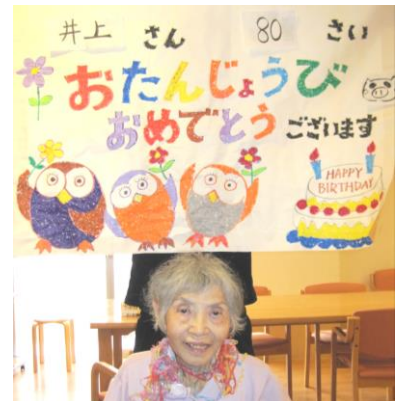 井上 さん 80 さい
おたんじょうび
おめでとう ございます
HAPPY
BIRTHDAY